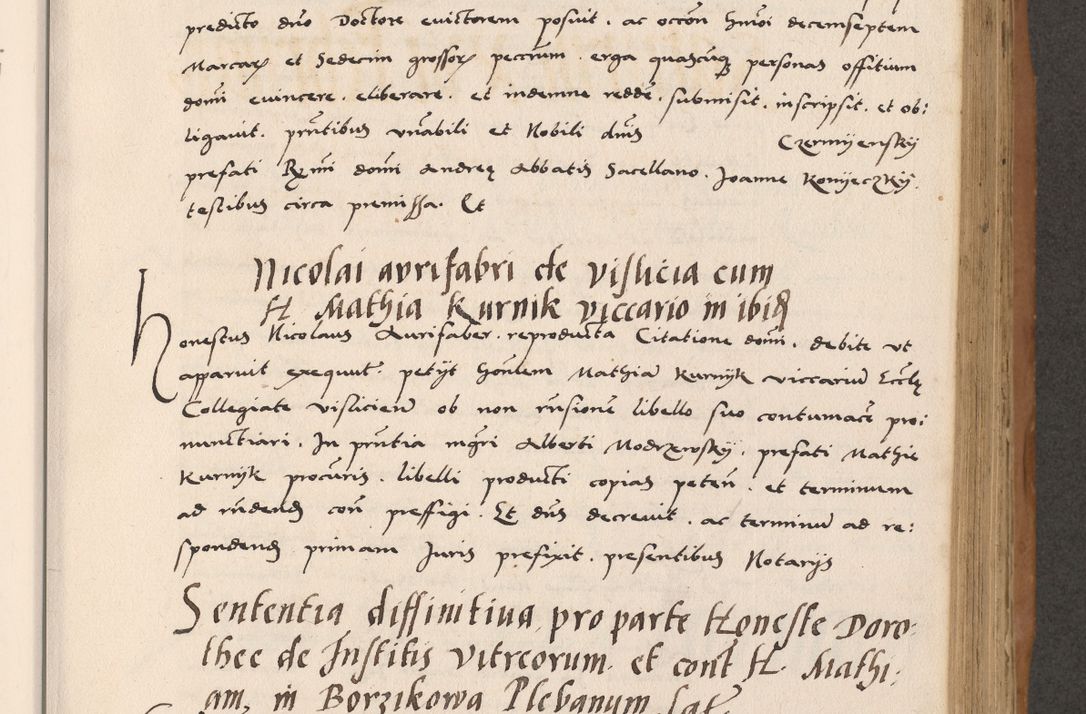 predicto dno Doctore evictorem posuit. ac occon hmoi decemseptem
Marcarz et Sedecim grossorz peccrum. erga quascuqz personas offitium
domi evincere. eliberare. et indemne redde. submisit. inscripsit. et ob:
ligavit. pntibus vnabili et Nobili dnis Czermyensky
prefati Rmi domi Andreę Abbatis Sacellano. Joanne Konyeczky
testibus circa premissa. Et
Nicolai aurifabri de vislicia cum
H. Mathia Kurnik viccario in ibid
Honestus Nicolaus Aurifaber. reproducta Citatione domi. debite vt
apparuit exequut. petyt honlem Mathia Kurnyk viccariu Eccłę
Collegiate vislicien ob non rnsione libello suo contumace pro:
nunctiari. In pntia mgri Alberti Modrzewsky. prefati Mathie
Kurnyk procuris. libelli producti copias peten. et terminum
ad rndend con preffigi. Et dns decrevit. ac terminu ad re:
spondend primam Juris prefixit. presentibus Notarijs
Sententia diffinitiua pro parte Honeste Doro:
thee de Institis vitreorum. et cont H. Mathi:
am, in Borzikowa Plebanum lat